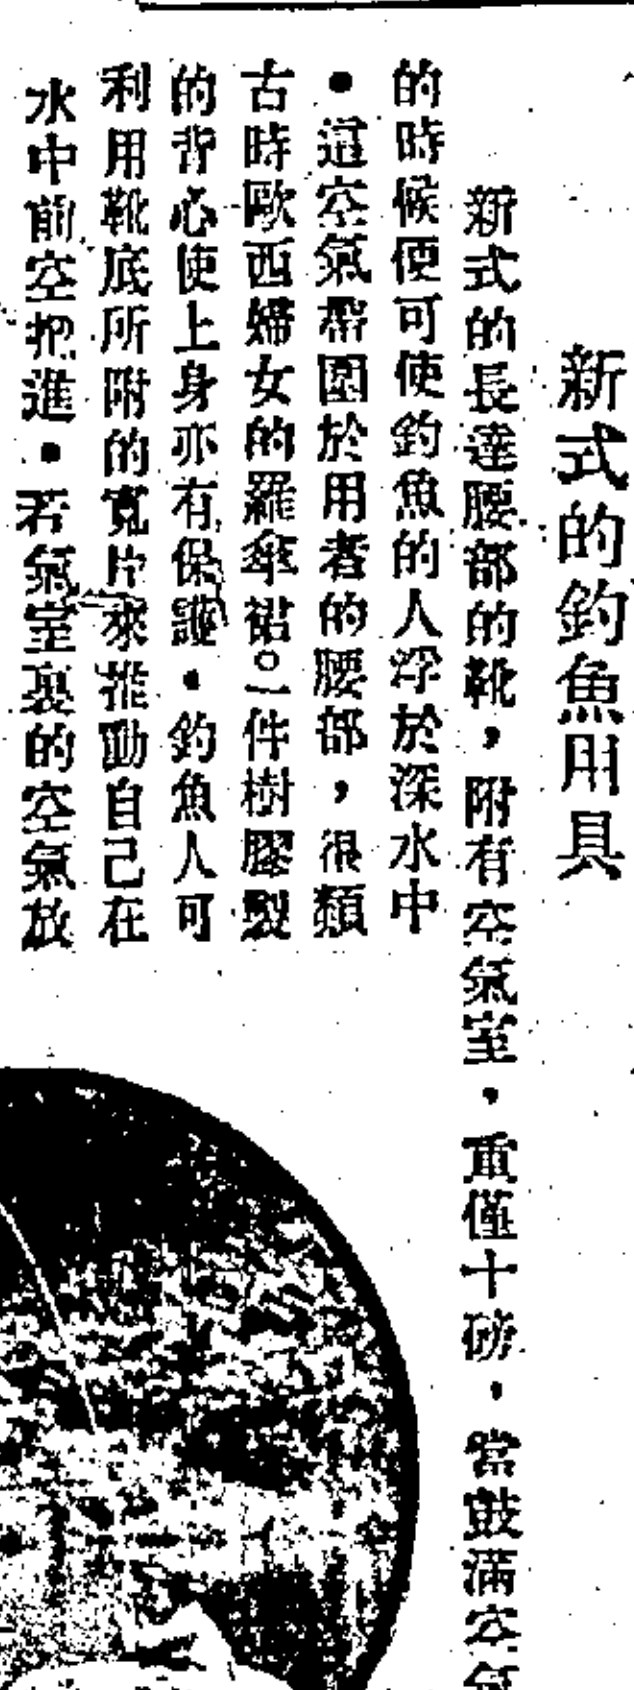 新式的釣魚用具
新式的長達腰部的靴，附有空氣室，重僅十磅，當鼓滿空氣
的時候便可使釣魚的人浮於深水中
●這空氣帶圍於用者的腰部，很類
古時歐西婦女的羅傘裙○一件樹膠製
的背心使上身亦有保護●釣魚人可
利用靴底所附的寬片來推動自己在
水中前空把進●若氣室裏的空氣放